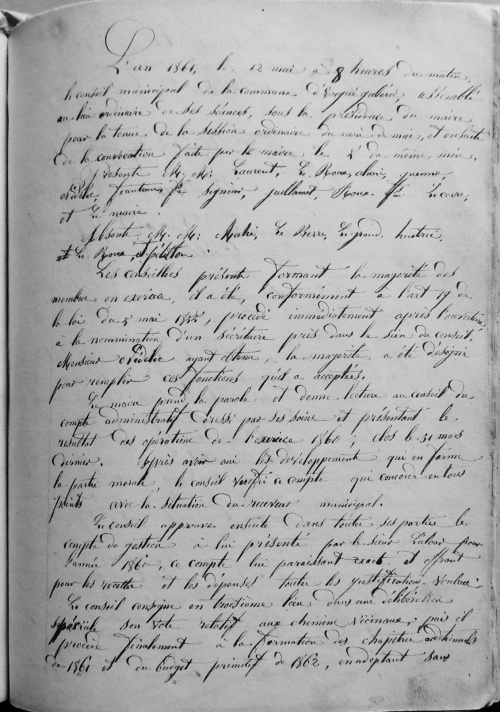 L'an 1861, le 12 mai à 8 heures du matin,
le conseil municipal de la commune d'Ergué gabéric assemblé
au lieu ordinaire de ses séances, sous la présidence du maire
pour la tenue de la session ordinaire du mois de mai, et ensuite
de la convocation faite par le maire le 5 du même mois.
Présents M. M. Laurent, Le Roux, guenno,
signour, guillamot, Roux Lecorre,
et Le maire.
Absents M. M. Mahé, Le Berre, Le grand,
Le Roux,
Les conseillers présents formant la majorité des
membres en exercice, il a été, conformément à l'art 19 de
la loi du 5 mai 1855, procédé immédiatement après l'ouverture,
à la nomination d'un Sécrétaire pris dans le sein du conseil.
Monsieur ayant obtenu la majorité a été désigné
pour remplir ces fonctions qu'il a acceptées.
Le maire prend la parole et donne lecture au conseil du
compte administratif dressé par ses soins et présentant le
résultat des opérations de l'exercice 1860, clos le 31 mars
dernier. Après avoir ouï les développements qui en forme
la partie morale, le conseil vérifié ce compte qui concorde en tous
points avec la situation du receveur municipal.
Le conseil approuve ensuite dans toutes ses parties le
compte de gestion à lui présenté par le sieur pour
l'année 1860, ce compte lui paraissant exact et offrant
pour les recettes et les dépenses toutes les justifications voulues.
Le conseil consigne en troisième lieu dans une délibération
spéciale son vote relatif aux chemins vicinaux, puis il
procède finalement à la formation des chapitres additionnels
de 1861 et du budget primitif de 1862, en adoptant sans